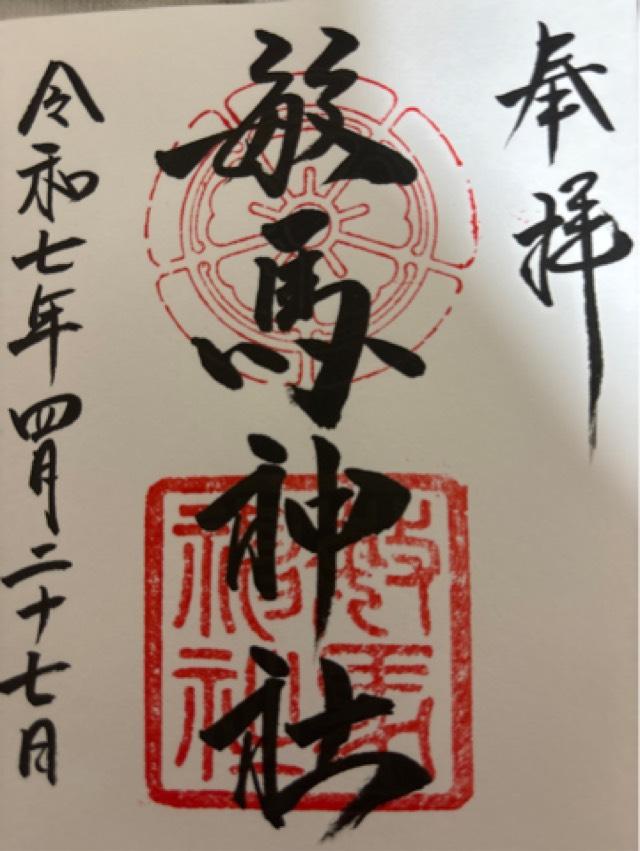 奉拝
敏馬神社
令和七年四月二十七日
敏馬
神社